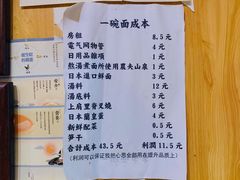 一碗面成本
房租 8.5元
電气网物管 4元
日用品雜项 1元
熬湯煮面所使用農夫山泉 1元
日本進口鲜面 3元
湯料 12元
湯底料 3元
上肩里脊叉燒 6元
日本蘭皇蛋 4元
新鲜配菜 0.5元
笋干 0.5元
合计成本43.5元 利潤11.5元
(利润可以保证我把心思全部用在提升品质上)